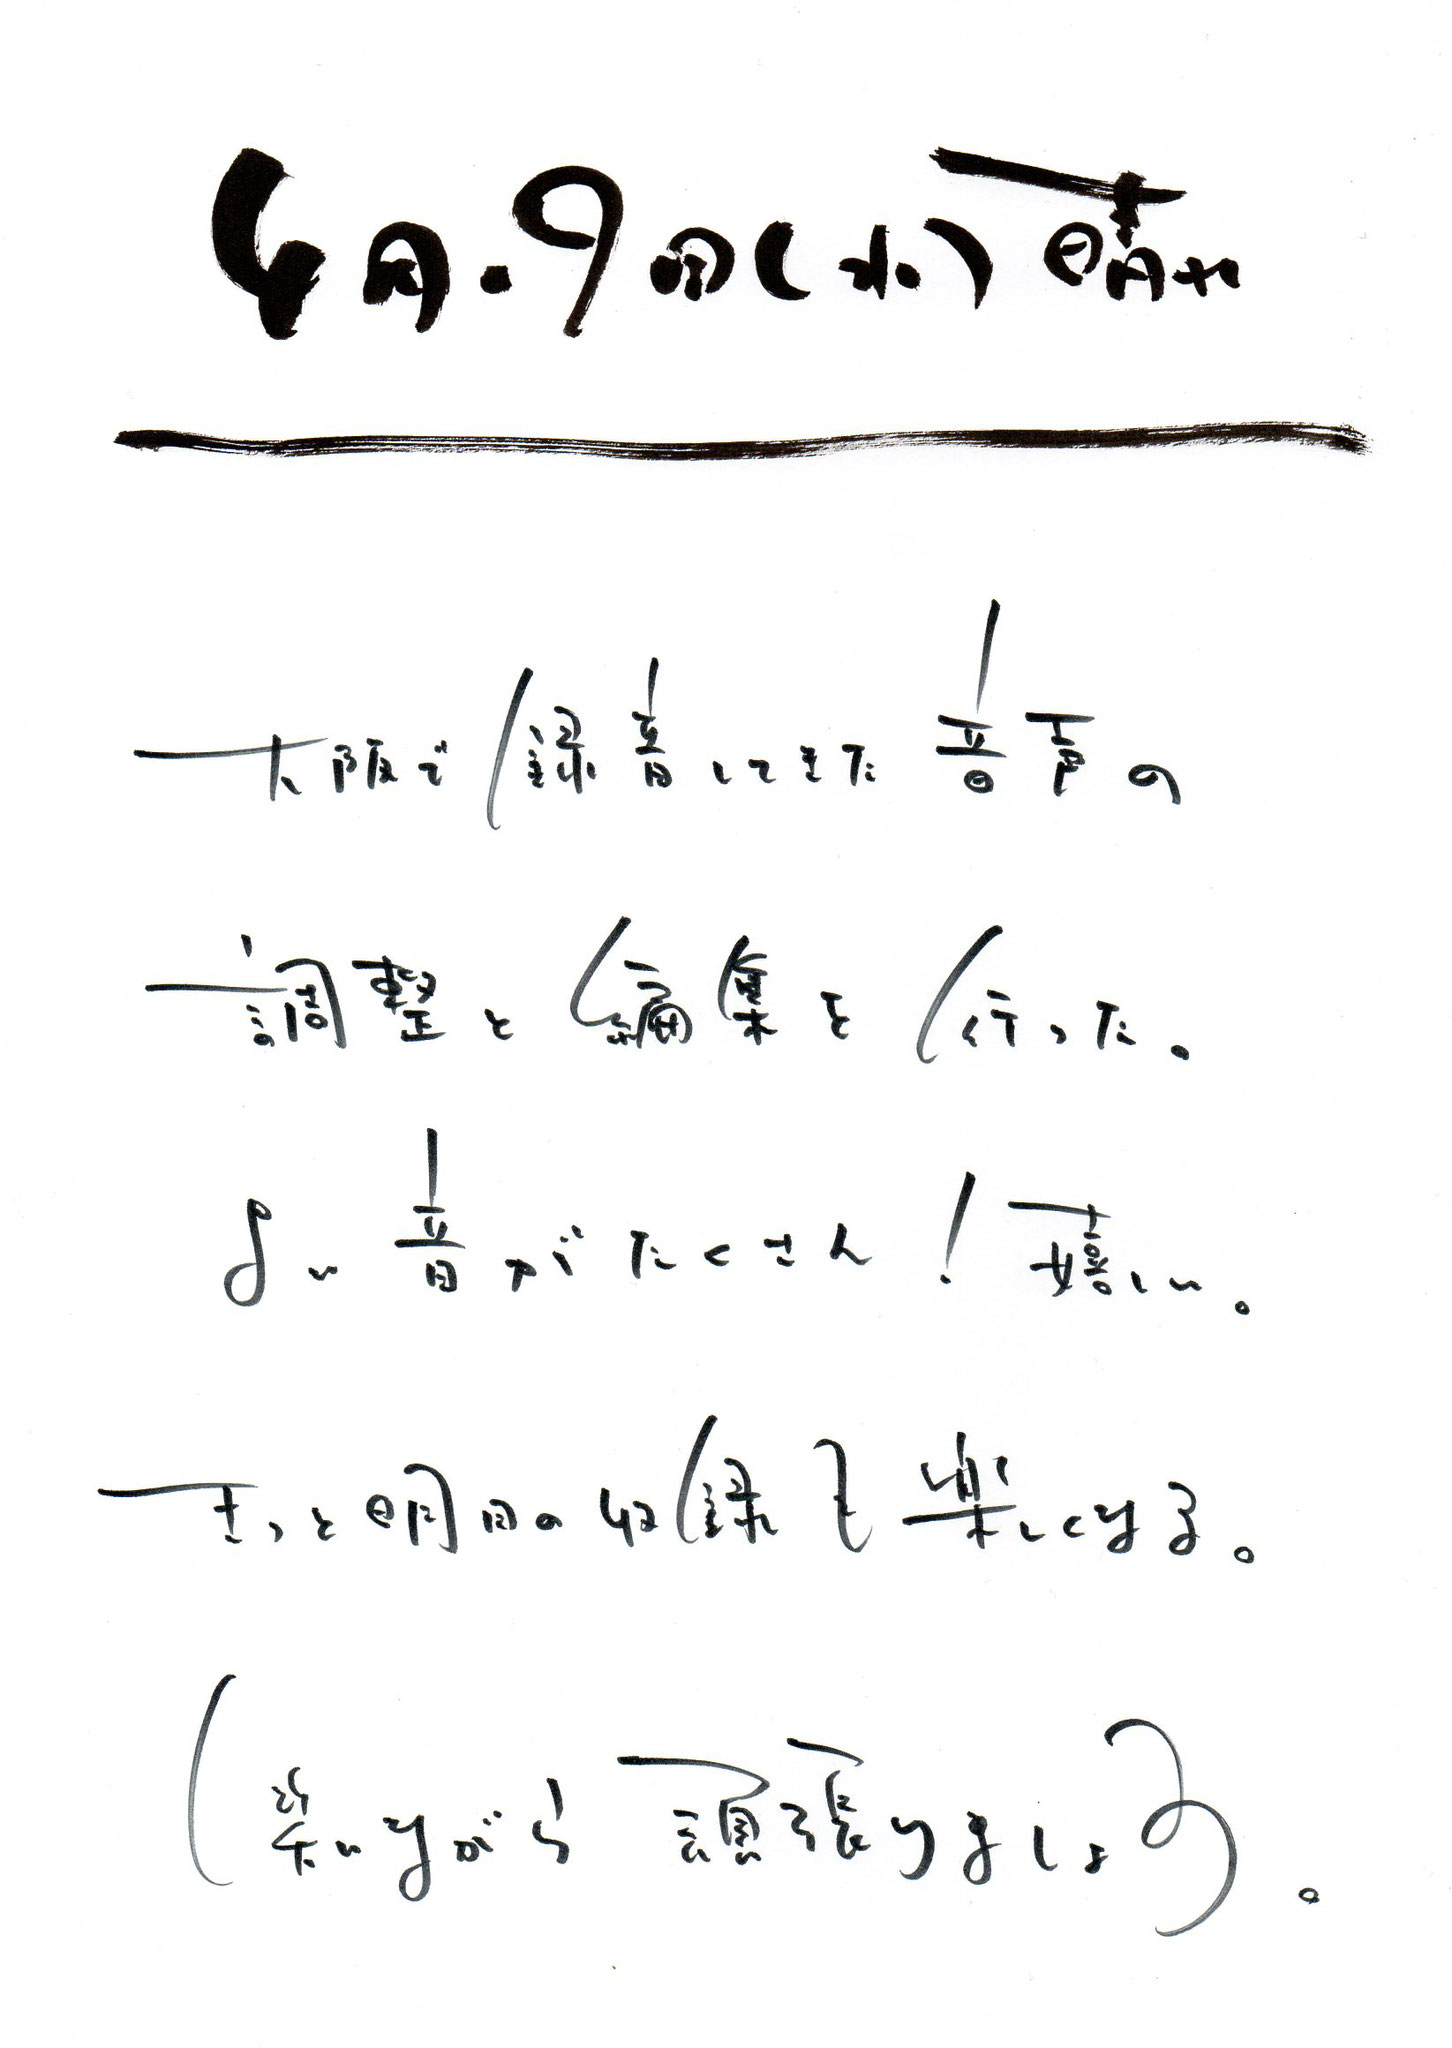 4月.9日(水)晴れ
大阪で録音してきた音声の
調整と編集を行った。
よい音がたくさん!嬉しい。
きっと明日の収録も楽しくなる。
笑いながら頑張りましょう。